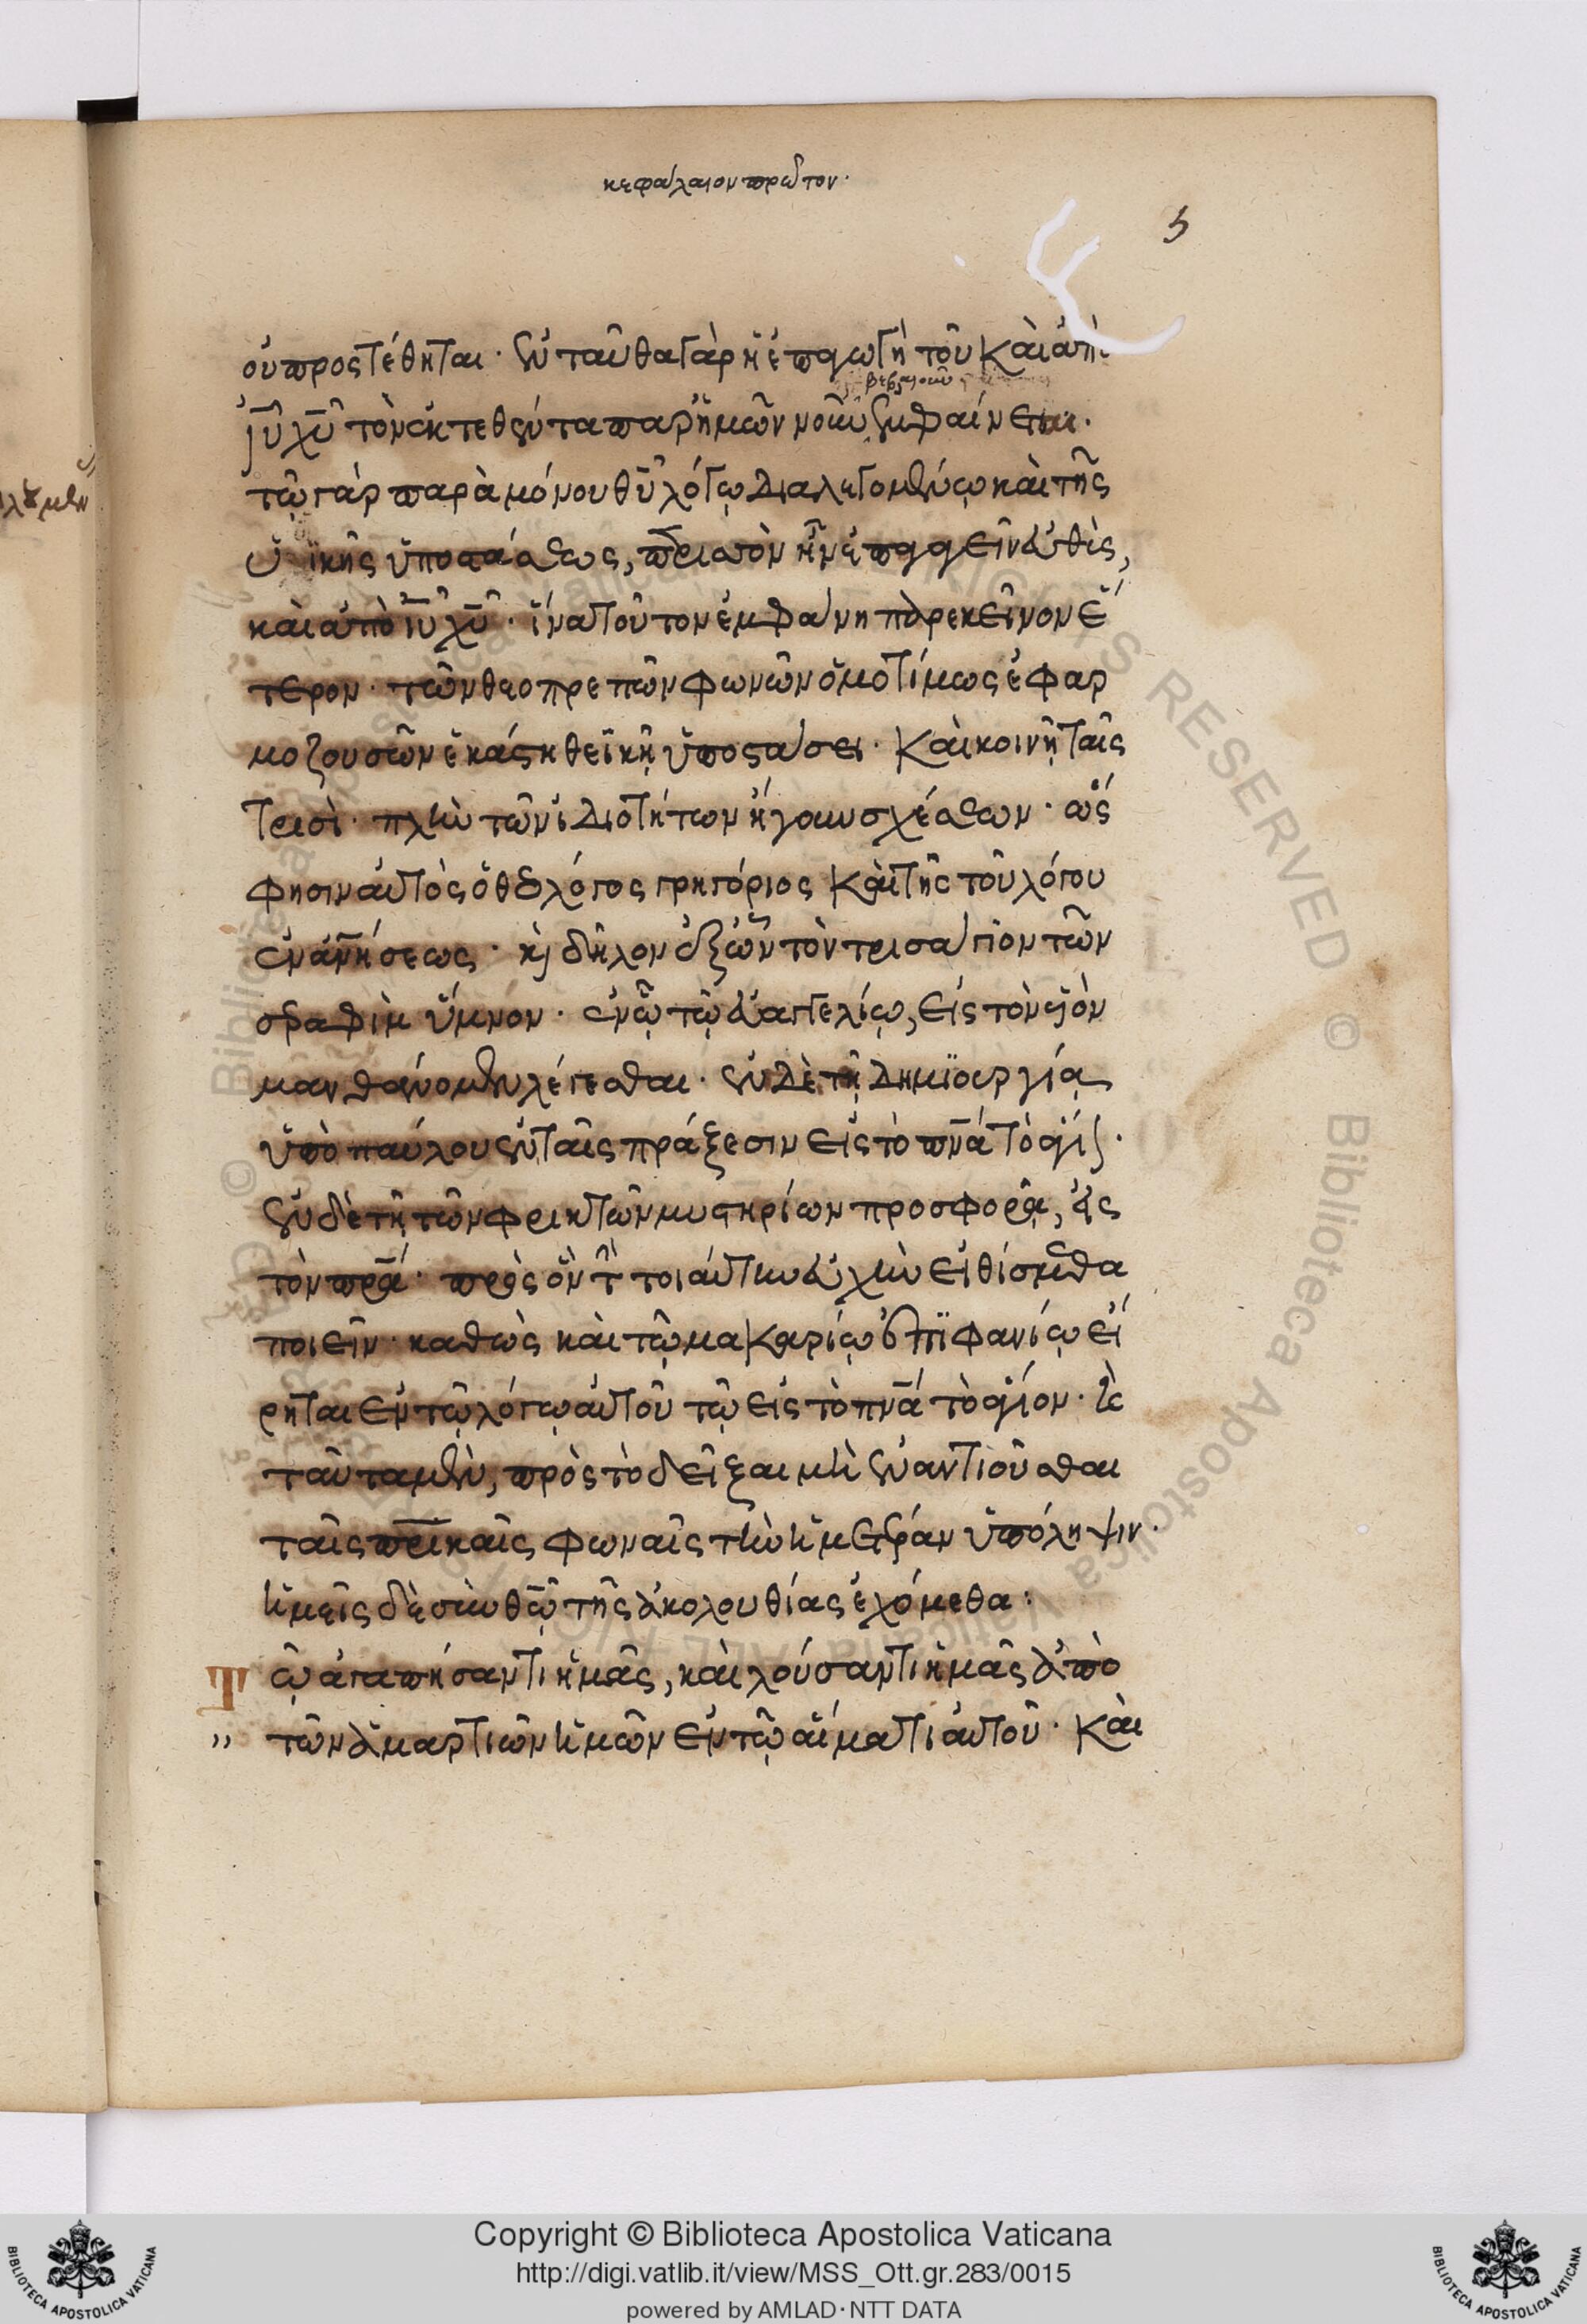 κεφάλαιον πρῶτον·
5
οὐ προστέθηται· ἐνταῦθα γὰρ ἡ ἐπαγωγὴ τοῦ καὶ ἀπὸ
βεβαιοῦν
ἰῦ χῦ τὸν ἐκτεθέντα παρ' ἡμῶν νοῦν ἐμφαίνει·
τῷ γὰρ παρὰ μόνου θῦ λόγῳ διαλεγομένῳ καὶ τῆς
ὑποστάσεως, περιττὸν ἦν ἐπαγαγεῖν εὐθὺς,
καὶ ἀπὸ ἰῦ χῦ· ἵνα τοῦτον ἐμφαίνῃ παρ' ἐκεῖνον ἕ
τερον· τῶν θεοπρεπῶν φωνῶν ὁμοτίμως ἐφαρ
μοζουσῶν ἑκάστη θεϊκῇ ὑποστάσει· καὶ κοινῇ ταῖς
τρισὶ· πλὴν τῶν ἰδιοτήτων ἤγουν σχέσεων· ὥς
φησιν αὐτὸς ὁ θεολόγος γρηγόριος καὶ τῆς τοῦ λόγου
ἐνανήσεως· κ δῆλον ἐξ ὧν τὸν τρισάγιον τῶν
σεραφὶμ ὕμνον· ἐν τῷ εὐαγγελίῳ, εἰς τὸν υἱὸν
μανθάνομεν λέγεσθαι· ἐν δὲ τῇ δημιουργίᾳ
ὑπὸ παύλου ἐν ταῖς πράξεσιν εἰς τὸ πνᾶ τὸ ἅγιον·
ἐν δὲ τῇ τῶν φρικτῶν μυστηρίων προσφορᾷ, εἰς
τὸν πρᾶ· πρὸς ὃν τ τοιαύτην εὐχὴν εἰθίσμεθα
ποιεῖν· καθὼς καὶ τῷ μακαρίῳ ἐπιφανίῳ εἴ
ρηται ἐν τῷ λόγῳ αὐτοῦ τῷ εἰς τὸ πνᾶ τὸ ἅγιον· κ
ταῦτα μὲν, πρὸς τὸ δεῖξαι μὴ ἐναντιοῦσθαι
ταῖς πρικαῖς φωναῖς τὴν ἡμετέραν ὑπόληψιν·
ἡμεῖς δὲ σὺν θῶ τῆς ἀκολουθίας ἐχόμεθα:
Τῷ ἀγαπήσαντι ἡμᾶς, καὶ λούσαντι ἡμᾶς ἀπὸ
" τῶν ἁμαρτιῶν ἡμῶν ἐν τῷ αἵματι αὐτοῦ· καὶ
Copyright © Biblioteca Apostolica Vaticana
http://digi.vatlib.it/view/MSS_Ott.gr.283/0015
powered by AMLAD·NTT DATA